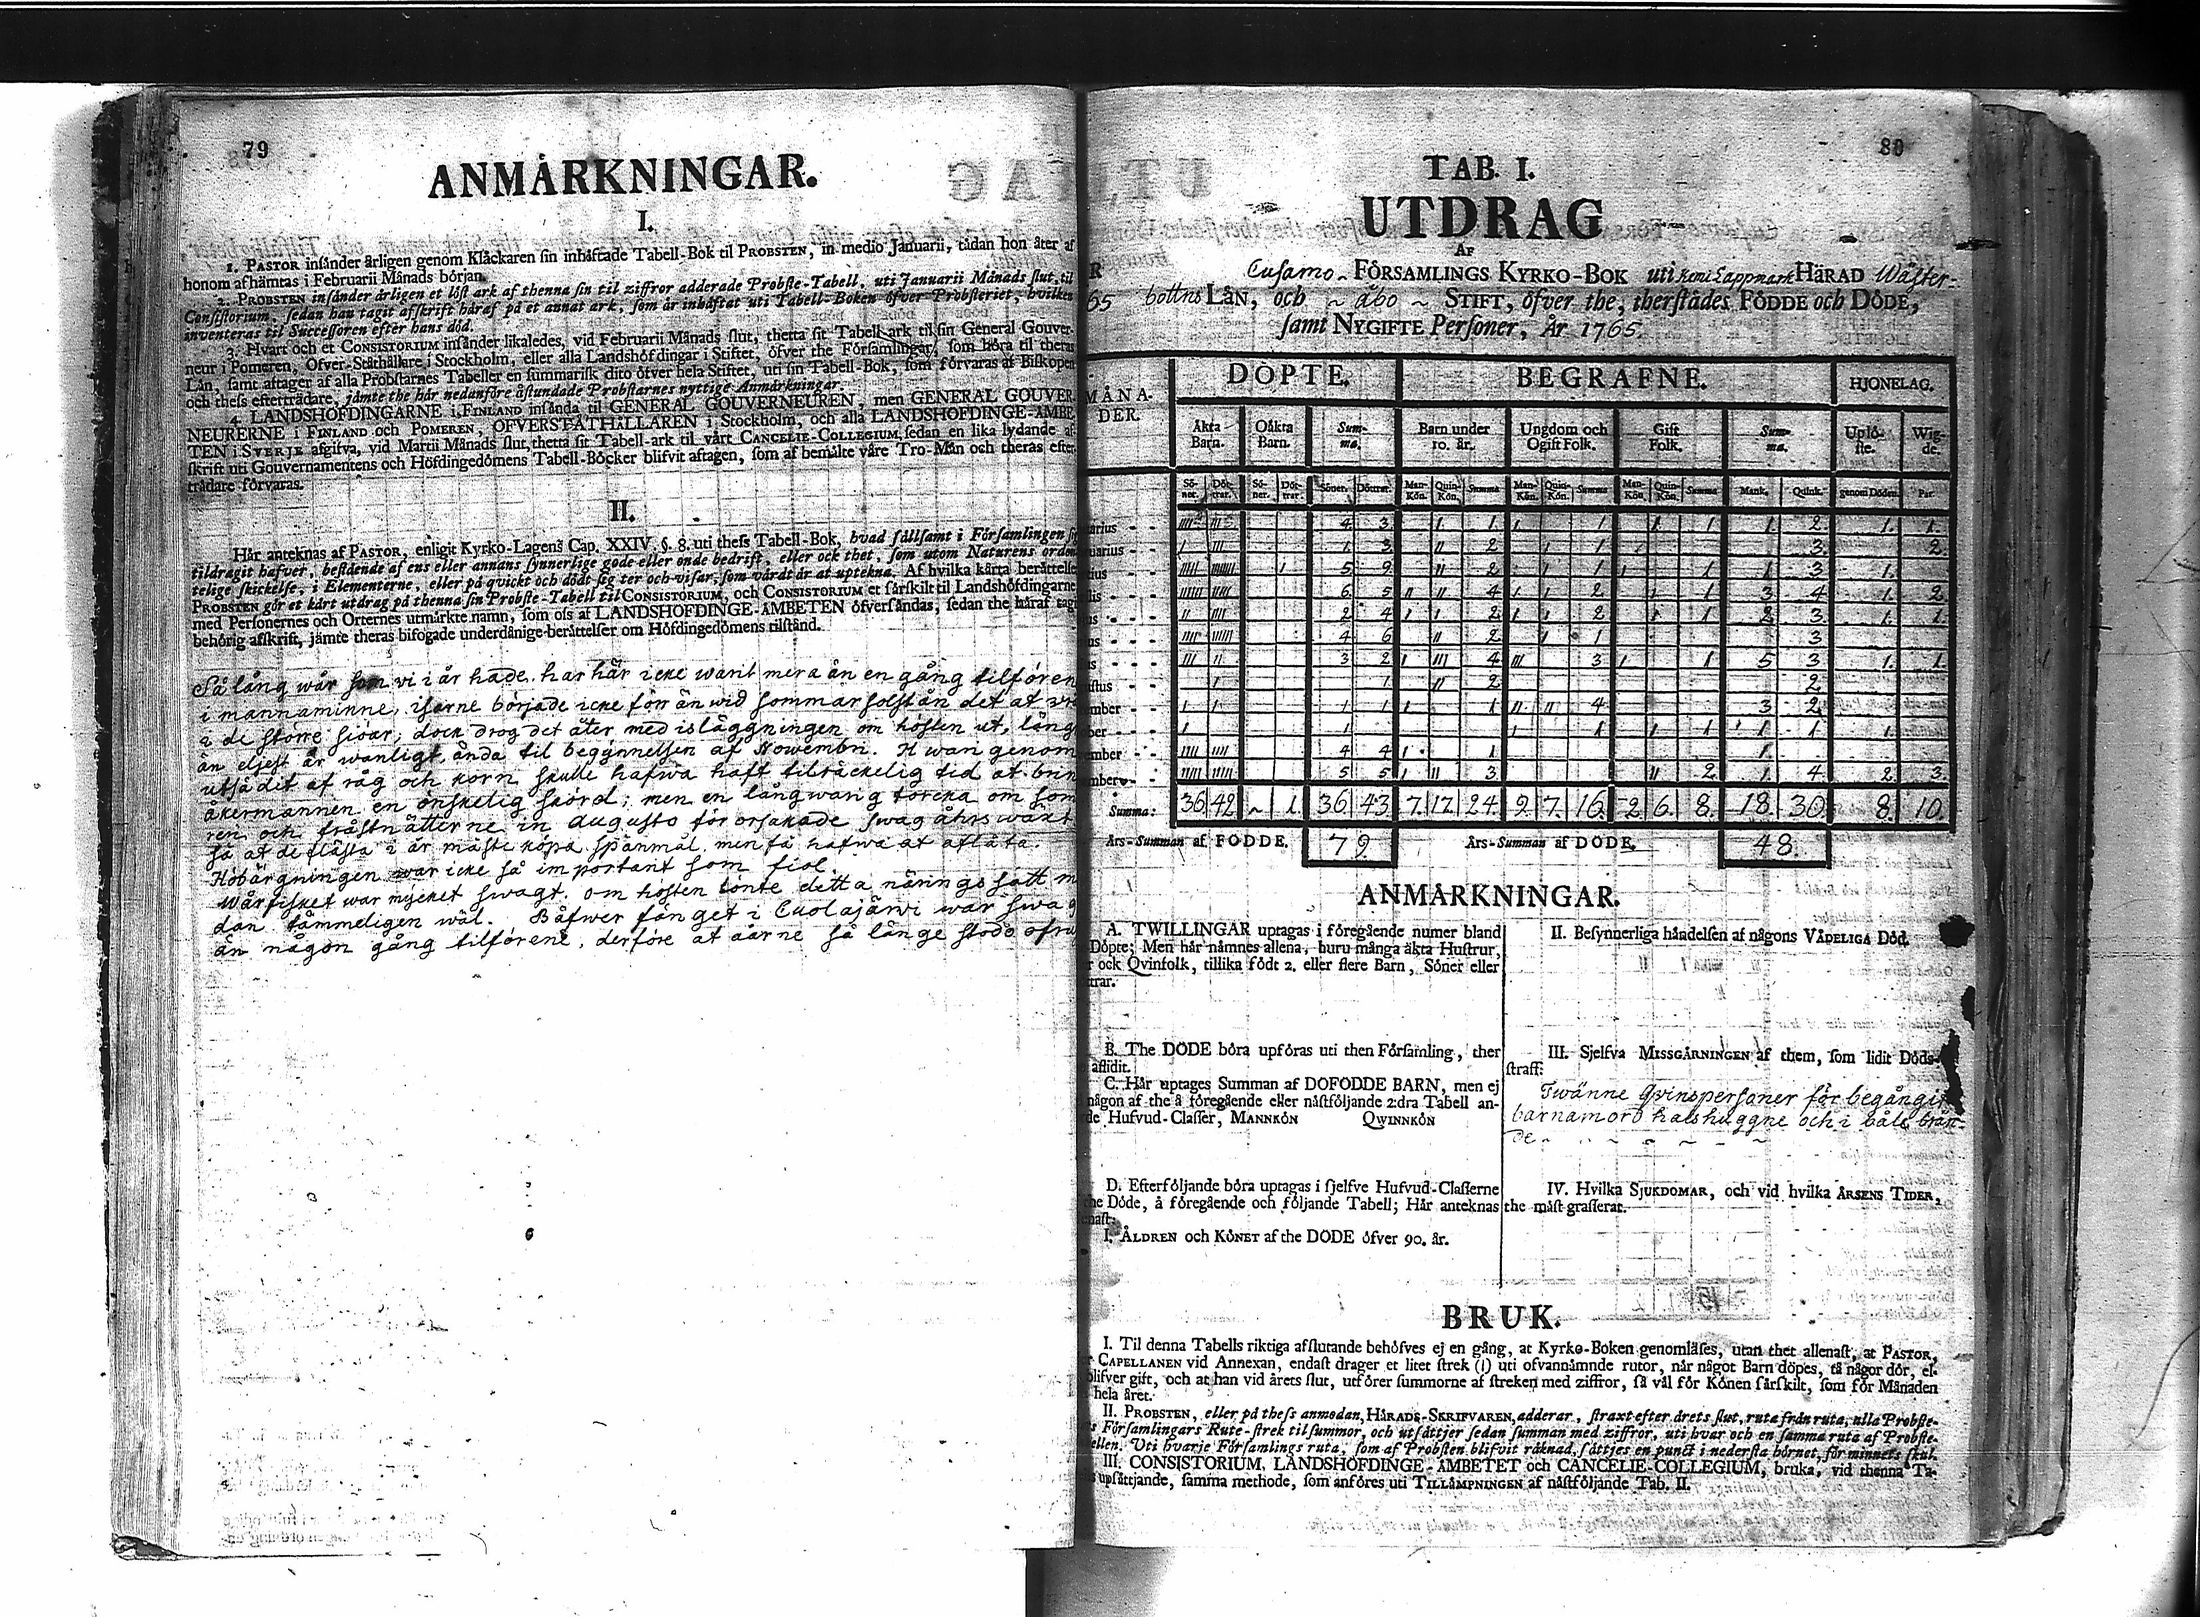 79
ANMÅRKNINGAR.
I.
1. PASTOR insånder årligen genom Klåckaren sin inhåftade Tabell-Bok til PROBSTEN, in medio Januarii, tådan hon åter af
honom afhåmtas i Februarii Månads början.
2. PROBSTEN insånder årligen et löst ark af thenna sin til ziffror adderade Probste-Tabell, uti Januarii Månads slut, til
Consistorium, sedan han tagit afskrift håraf på et annat ark, som år inbåftat uti Tabell-Boken öfver Probsteriet, hvilken
inventeras til Successoren efter hans död.
3. Hvart och et CONSISTORIUM insånder likaledes, vid Februarii Månads slut, thetta sit Tabell-ark til sin General Gouver-
neur i Pomeren, Öfver-Ståthållare i Stockholm, eller alla Landshöfdingar i Stiftet, öfver the Församlingar, som höra til theras
Lån, samt aftager af alla Probstarnes Tabeller en summarisk dito öfver hela Stiftet, uti sin Tabell-Bok, som förvaras af Biskopen
och thess eftertrådare, jåmte the hår nedanföre åstundade Probstarnes nyttige Anmårkningar.
4. LANDSHÖFDINGARNE i FINLAND insånda til GENERAL GOUVERNEUREN, men GENERAL GOUVER-
NEURERNE i FINLAND och POMEREN, ÖFVERSTÅTHÅLLAREN i Stockholm, och alla LANDSHÖFDINGE-ÅMBE-
TEN i SVERJE afgifva, vid Martii Månads slut, thetta sit Tabell-ark til vårt CANCELIE-COLLEGIUM, sedan en lika lydande af-
skrift uti Gouvernamentens och Höfdingedömens Tabell-Böcker blifvit aftagen, som af bemålte våre Tro-Mån och theras efter-
trådare förvaras.
II.
Hår anteknas af PASTOR, enligit Kyrko-Lagens Cap. XXIV §. 8. uti thess Tabell-Bok, hvad sållsamt i Församlingen sig
tildragit hafver, bestående af ens eller annans synnerlige gode eller onde bedrift, eller ock thet, som utom Naturens ordent-
telige skickelse, i Elementerne, eller på qvickt och dödt sig ter och visar, som vårdt år at uptekna. Af hvilka kårta beråttelser
PROBSTEN gör et kårt utdrag på thenna sin Probste-Tabell til CONSISTORIUM, och CONSISTORIUM et sårskilt til Landshöfdingarne
med Personernes och Orternes utmårkte namn, som oss af LANDSHÖFDINGE-ÅMBETEN öfversåndas, sedan the håraf tagit
behörig afskrift, jåmte theras bifogade underdånige beråttelser om Höfdingedömens tilstånd.
Så lång wår som vi i år hade, har här icke warit mera än en gång tilförene
i mannaminne, isarne började icke förr än wid sommar solstån det at
i de större siöar; dock drog det åter med isläggningen om hösten ut, långt
än eljest är wanligt, ända til begynnelsen af Nowembri. Hwarigenom
utsädit af råg och korn skulle hafwa haft tilräckelig tid at
åkermannen en önskelig skörd; men en långwarig torcka om
ren och frästnätterne in Augusto förorsakade swag åhrswäxt
så at de flästa i år måste köpa spanmål, men få hafwa at aflåta.
Höbärgningen war icke så important som fiol.
Wårfisket war mycket swagt, om hösten lönte detta närings sätt
dan tämmeligen wäl. Bäfwer fånget i Cuolajärwi war swag
än någon gång tilförene, derföre at åarne så länge stodo
80
TAB. I.
UTDRAG
AF
Cusamo FÖRSAMLINGS KYRKO-BOK uti Kemi Lappmark HÅRAD Wåster-
bottns LÅN, och Åbo STIFT, öfver the, therstådes FÖDDE och DÖDE,
samt NYGIFTE Personer, År 1765.
MÅNA- DÖPTE. BEGRAFNE. HJONELAG.
DER. Åkta Barn. Oåkta Barn. Summa. Barn under 10. år. Ungdom och Ogift Folk. Gift Folk. Summa. Uplöste. Wigde.
Söner. Döttrar. Söner. Döttrar. Söner. Döttrar. Man-Kön. Quin-Kön. Summa Man-Kön. Quin-Kön. Summa Man-Kön. Quin-Kön. Summa Mank. Quink. genom Döden. Par.
uarius - - 4. 3. 1. 1. 1 1 1. 1 1. 2. 1. 1.
uarius - - 1. 3. 2. 1 1. 3. 2.
5 9. 2. 1 1 1 3 1.
6. 5 4 1 1 2 1 1 3 4 1. 2.
2 4 1 1 2 1 1 2 1 1 2. 3. 1. 1.
4 6 2. 1 1 3
3 2 1 4 3 1 1 5 3 1. 1.
stus - - 1 2 2.
ember - - 1 1 1 1 4 3 2
ober - - 1 1 1 1 1 1 1
ember - - 4 4 1 1 1.
ember - - 5 5 1 3 2 1. 4 2. 3.
Summa: 36 42 ~ 1. 36 43 7. 17. 24. 9. 7. 16. 2. 6. 8. 18. 30. 8. 10.
Års-Summan af FÖDDE. 79. Års-Summan af DÖDE. 48.
ANMÅRKNINGAR.
A. TWILLINGAR uptagas i föregående numer bland
Döpte; Men hår nåmnes allena, huru många åkta Hustrur,
ock Qvinfolk, tillika födt 2. eller flere Barn, Söner eller
trar.
B. The DÖDE böra upföras uti then Församling, ther
aflidit.
C. Hår uptages Summan af DÖFÖDDE BARN, men ej
någon af the å föregående eller nåstföljande 2:dra Tabell an-
de Hufvud-Classer, MANNKÖN QWINNKÖN
D. Efterföljande böra uptagas i sjelfve Hufvud-Classerne
the Döde, å föregående och följande Tabell; Hår anteknas
enast:
I. ÅLDREN och KÖNET af the DÖDE öfver 90. år.
II. Besynnerliga håndelsen af någons VÅDELIGA Död.
III. Sjelfva MISSGÅRNINGEN af them, som lidit Döds-
straff:
Twänne Qvinspersoner för begångit
barnamord halshuggne och i båle brän-
de
IV. Hvilka SJUKDOMAR, och vid hvilka ÅRSENS TIDER,
the måst grasserat.
BRUK.
I. Til denna Tabells riktiga afslutande behöfves ej en gång, at Kyrko-Boken genomlåses, utan thet allenast, at PASTOR,
CAPELLANEN vid Annexan, endast drager et litet strek (|) uti ofvannåmnde rutor, når något Barn döpes, tå någor dör, el-
blifver gift, och at han vid årets slut, utförer summorne af streken med ziffror, så vål för Könen sårskilt, som för Månaden
hela året.
II. PROBSTEN, eller på thess anmodan, HÅRADS-SKRIFVAREN, adderar, straxt efter årets slut, ruta från ruta, alla Probste-
Församlingars Rute-strek tilsummor, och utsåttjer sedan summan med ziffror, uti hvar och en samma ruta af Probste-
ellen. Uti hvarje Församlings ruta, som af Probsten blifvit råknad, såttjes en punct i nedersta hörnet, för minnets skul.
III. CONSISTORIUM, LANDSHÖFDINGE-ÅMBETET och CANCELIE-COLLEGIUM, bruka, vid thenna Ta-
upsåttjande, samma methode, som anföres uti TILLÅMPNINGEN af nåstföljande Tab. II.